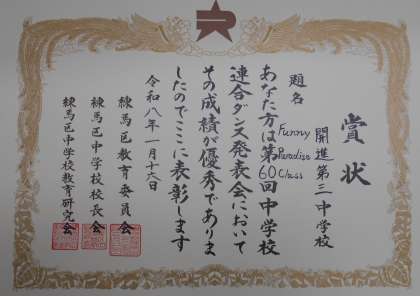 賞状
開進第三中学校
題名
Funny
Paradise
Class
あなた方は第60回中学校
連合ダンス発表会において
その成績が優秀でありま
したのでここに表彰します
令和八年一月十六日
練馬区教育委員会
練馬区中学校校長会
練馬区中学校教育研究会